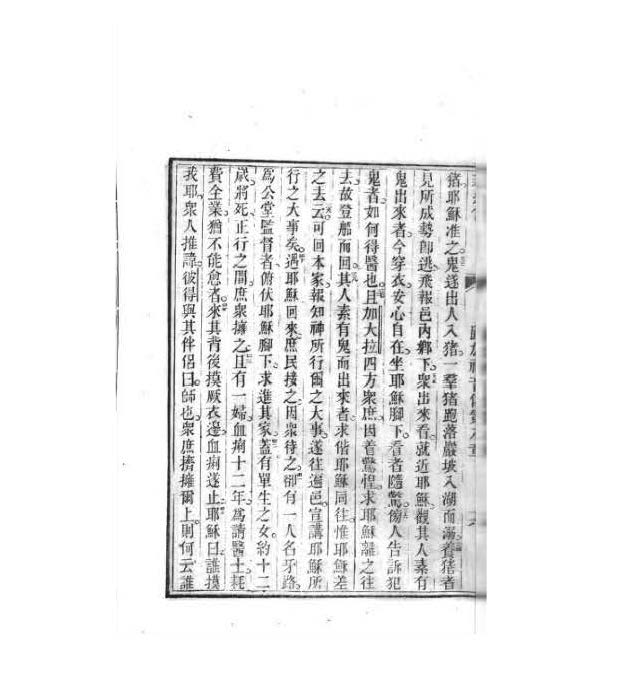 猪耶穌准之鬼遂出人入猪一羣猪跑落巖坡入湖而溺養猪者
見所成勢卽逃飛報邑內鄉下衆出來看就近耶穌觀其人素有
鬼出來者今穿衣安心自在坐耶穌脚下看者隨驚傍人告訴犯
鬼者如何得醫也且加大拉四方衆庶因着驚惶求耶穌離之往
去故登船而回其人素有鬼而出來者求偕耶穌同往惟耶穌差
之去云可回本家報知神所行爾之大事遂往遍邑宣講耶穌所
行之大事矣遇耶穌回來庶民接之因衆待之卻有一人名牙路
爲公堂監督者俯伏耶穌脚下求進其家蓋有單生之女約十二
歲將死正行之間庶衆擁之且有一婦血痢十二年爲請醫士耗
費全業猶不能愈者來其背後摸厥衣邊血痢遂止耶穌曰誰摸
我耶衆人推諱彼得與其伴侶曰師也衆庶擠擁爾上則何云誰